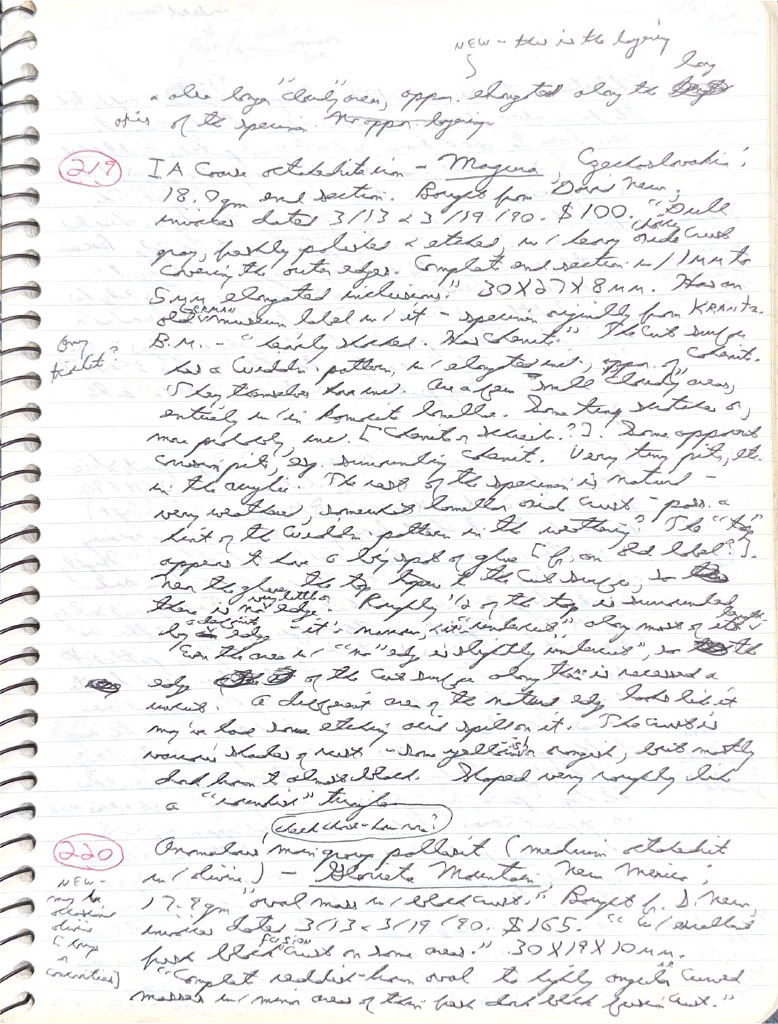 NEW - this is the layering
long
+ also longer "cloudy" areas, appar. elongated along the
axis of the specimen. No appar. layering
219 IA Coarse octahedrite iron - Magura, Czechoslovakia;
18.0 gm end section. Bought from Doris New,
invoice dates 3/13 & 3/19/90. $100. "Dull
gray, freshly polished & etched, w/ heavy oxide crust
covering the outer edges. Complete end section w/ 1 mm to
5 mm elongated inclusions." 30X27X8 mm. Has an
old GERMAN museum label w/ it - specimen originally from KRANTZ.
Any taenite?
B.M. - "heavily shocked. Has cohenite." The cut surface
has a Widdm. pattern, w/ elongated incl., appar. of cohenite.
They themselves have incl. Are a few small "cloudy" areas,
entirely w/in kamacite lamellae. Some tiny scratches or,
more probably, incl. [cohenite or schreib.?]. Some apparent
corrosion pits, esp. surrounding cohenit. Very tiny pits, etc.
in the acrylic. The rest of the specimen is natural -
very weathered, somewhat lamellar oxid crust - poss. a
hint of the Widdm. pattern in the weathering? The "top"
appears to have a big spot of glue [fr. an old label?].
Near the glue, the top tapers to the cut surface, so
there is very little or no edge. Roughly 1/2 of the top is surrounded
by a definite edge - it's narrow, & is "undercut" along most of its length
Even the area w/ "no" edge is slightly "undercut", so the
edge of the cut surface along this is recessed a
inwards. A different area of the natural edge looks like it
may've had some etching acid spill on it. The crust is
various shades of rust - some yellowish or orangish, but mostly
dark brown to almost black. Shaped very roughly like
a "roundish" triangle
check this - how now?
220 Anomalous, main group pallasit (medium octahedrit
w/ olivine) - Glorieta Mountain, New Mexico;
NEW -
may be
occasional
olivine
[ lamps
or
concavities]
17.9 gm "oval mass w/ black crust." Bought fr. D. New,
invoice dates 3/13 & 3/19/90. $165. "w/ excellent
fresh black FUSION crust on some areas." 30X19X10 mm.
"Complet reddish-brown oval to highly angular curved
masses w/ minor areas of thin fresh dark black fusion crust."